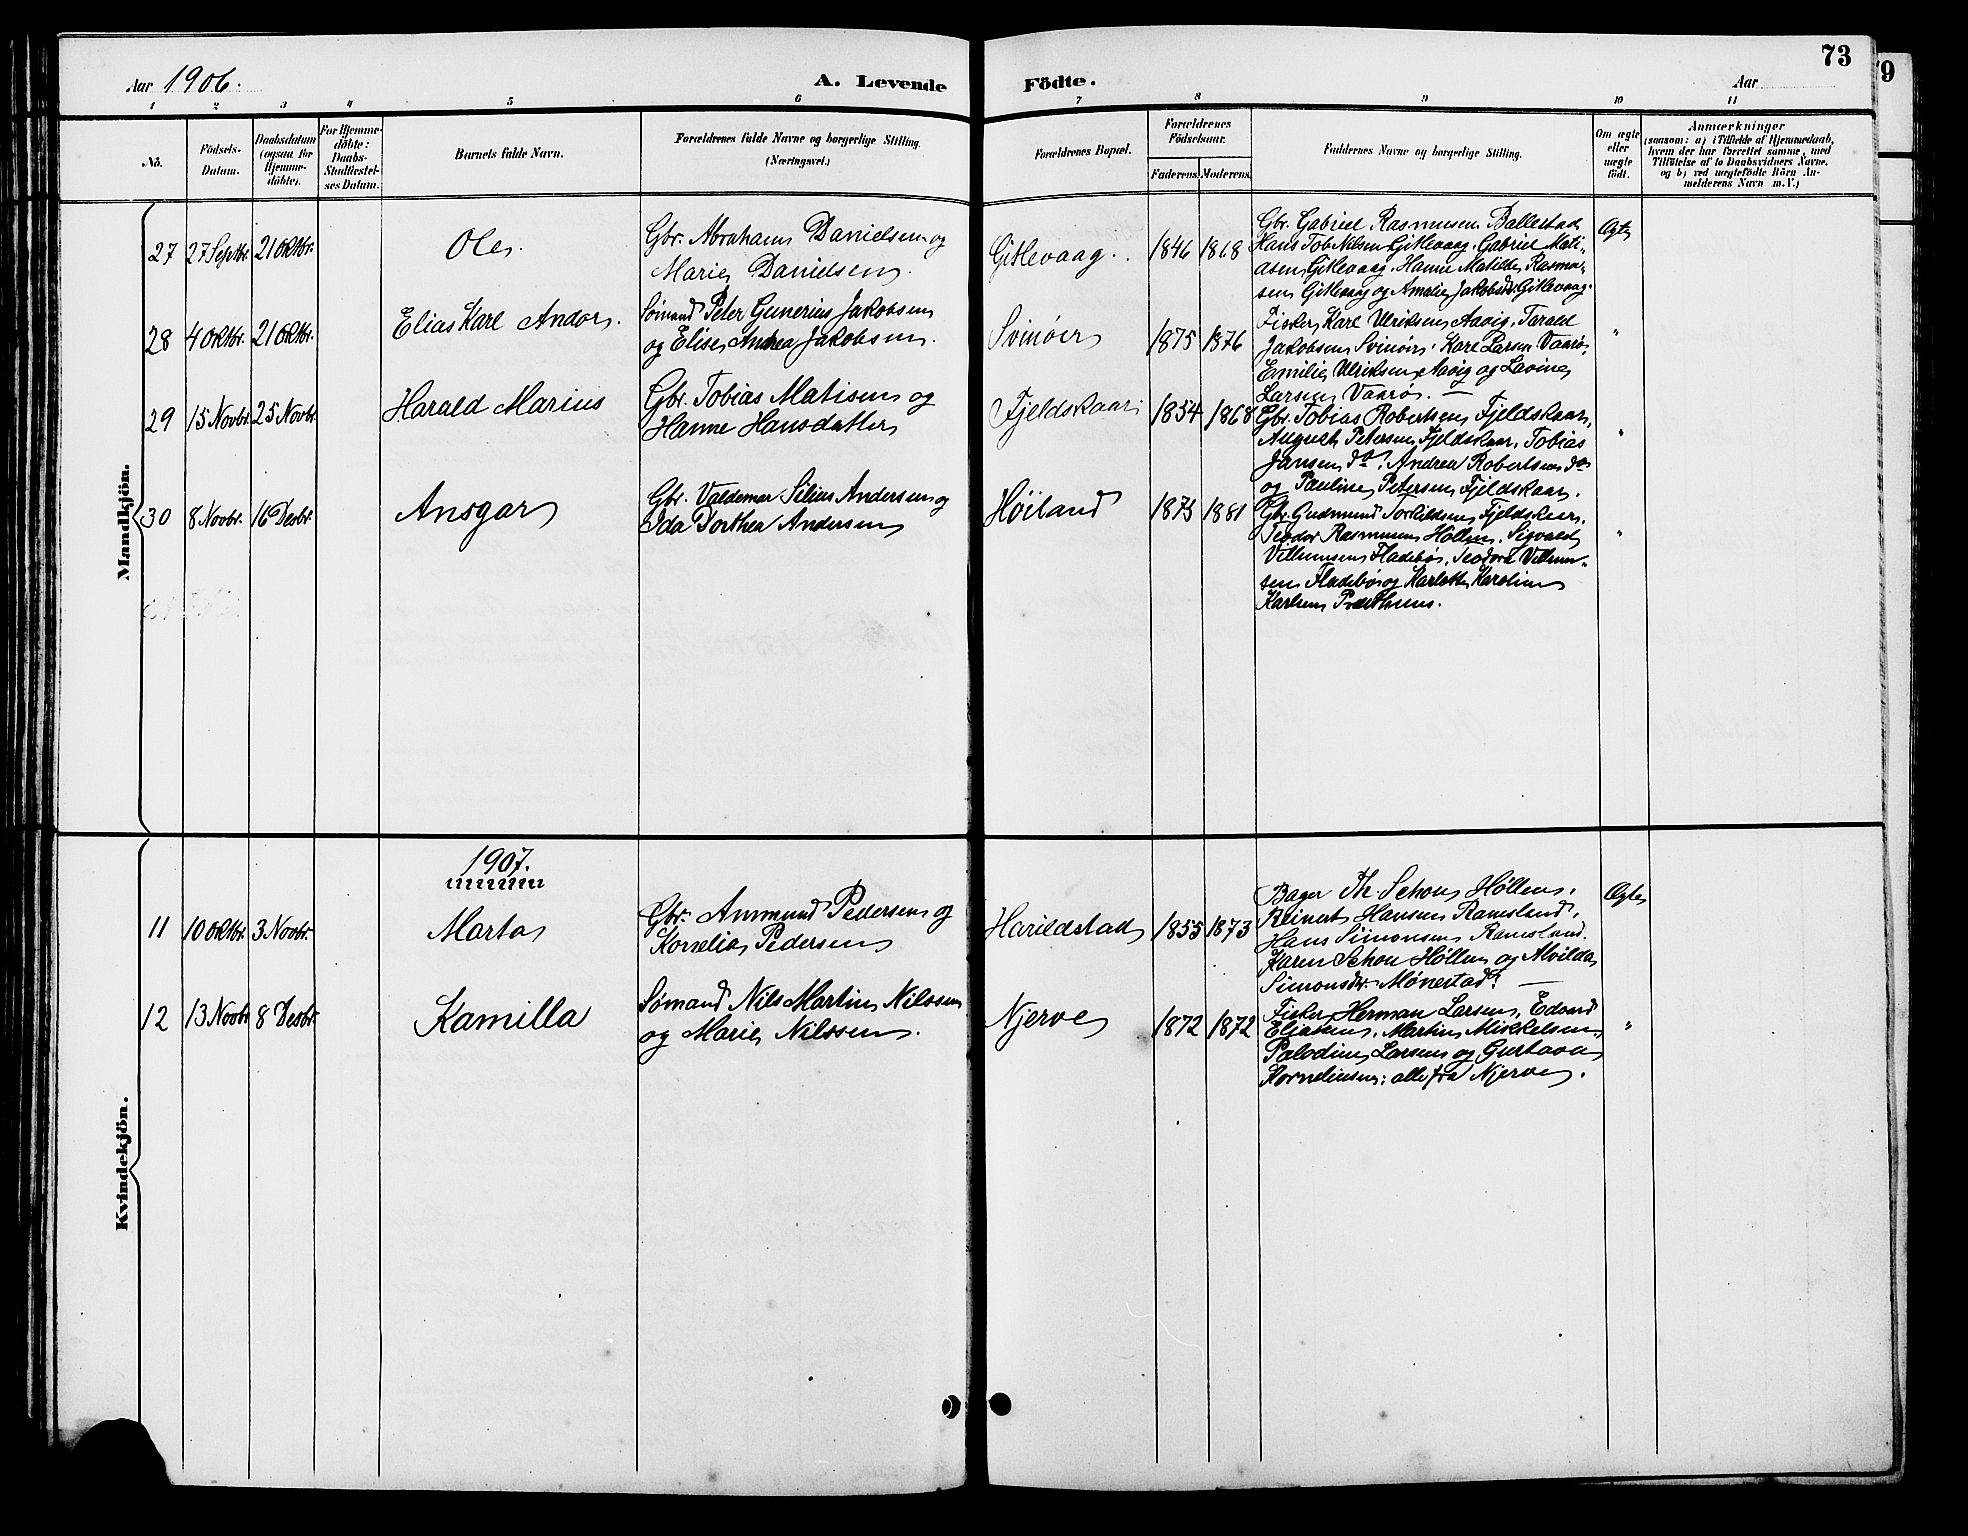 73
Aar 1906.
A. Levende Födte.
Aar
1 2 3 4 5 6 7 8 9 10 11
No.
Födsels-
Datum.
Daabsdatum
(ogsaa for
Hjemme-
döbte).
For Hjemme-
döbte:
Daabs-
Stadfæstel-
ses Datum.
Barnets fulde Navn.
Forældrenes fulde Navne og borgerlige Stilling.
(Næringsvei.)
Forældrenes Bopæl.
Forældrenes
Födselsaar.
Faderens. Moderens.
Faddernes Navne og borgerlige Stilling.
Om ægte
eller
uægte
födt.
Anmærkninger
(saasom: a) i Tilfælde af Hjemmedaab,
hvem der har forrettet samme, med
Tilföielse af to Daabsvidners Navne.
og b) ved uægtefödte Börn An-
melderens Navn m.V.)
Mandkjön.
27 27 Septbr. 21 Oktbr. Ole.
Gbr. Abraham Danielsen og
Marie Danielsen.
Gitlevaag. 1846 1868
Gbr. Gabriel Rasmusen Ballestad
Hans Tob Nilsen Gitlevaag, Gabriel Mati-
asen Gitlevaag, Hanne Matilde Rasmu-
sen Gitlevaag og Amalie Jakobsdt. Gitlevaag.
Ægte
28 4 Oktbr. 21 Oktbr. Elias Karl Andor.
Sømand Peter Gunerius Jakobsen
og Elise Andrea Jakobsen.
Svinøer 1875 1876
Fisker Karl Ulriksen Aavig, Tarald
Jakobsen Svinøer, Karl Larsen Vaarø,
Emilie Ulriksen Aavig og Lavine
Larsen Vaarø. —
"
29 15 Novbr. 25 Novbr. Harald Marius
Gbr. Tobias Matisen og
Hanne Hansdatter
Fjeldskaar 1854 1868
Gbr. Tobias Robertsen Fjeldskaar,
August Petersen Fjeldskaar, Tobias
Jansen do, Andrea Robertsen do
og Pauline Petersen Fjeldskaar.
"
30 8 Novbr. 16 Desbr. Ansgar
Gbr. Valdemar Silius Andersen og
Ida Dorthea Andersen
Høiland 1875 1881
Gbr. Gudmund Torkildsen Fjeldskaar,
Teodor Rasmusen Høllen, Sigvald
Villumsen Fladebø, Teodora Villum-
sen Fladebø og Karlotte Karoline
Karlsen Presthuus.
"
Kvindekjön.
1907.
11 10 Oktbr. 3 Novbr. Marta
Gbr. Ammund Pedersen og
Kornelia Pedersen
Harildstad 1855 1873
Bager Th. Schou Høllen,
Reinert Hansen Ramsland,
Hans Simonsen Ramsland.
Karen Schou Høllen og Alvilda
Simonsdr. Mønestad. —
Ægte
12 13 Novbr. 8 Desbr. Kamilla
Sømand Nils Martin Nilssen
og Marie Nilssen.
Njerve 1872 1872
Fisker Herman Larsen, Edvard
Eliasen, Martin Mikkelsen,
Palodine Larsen og Gustava
Korneliusen; alle fra Njerve.
"